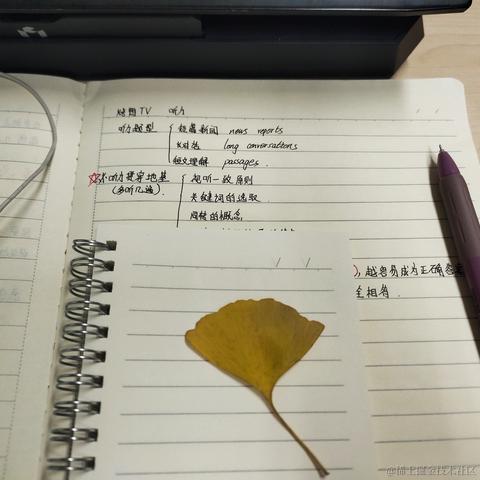 TV 听力
听力题型
短篇新闻 news reports
长对话 long conversations
短文理解 passages.
听力提客地基
(多听几遍).
视听一致原则
关键词的选取
同转的概念
越容易成为正确答案
全相肖.
@稀土掘金技术社区